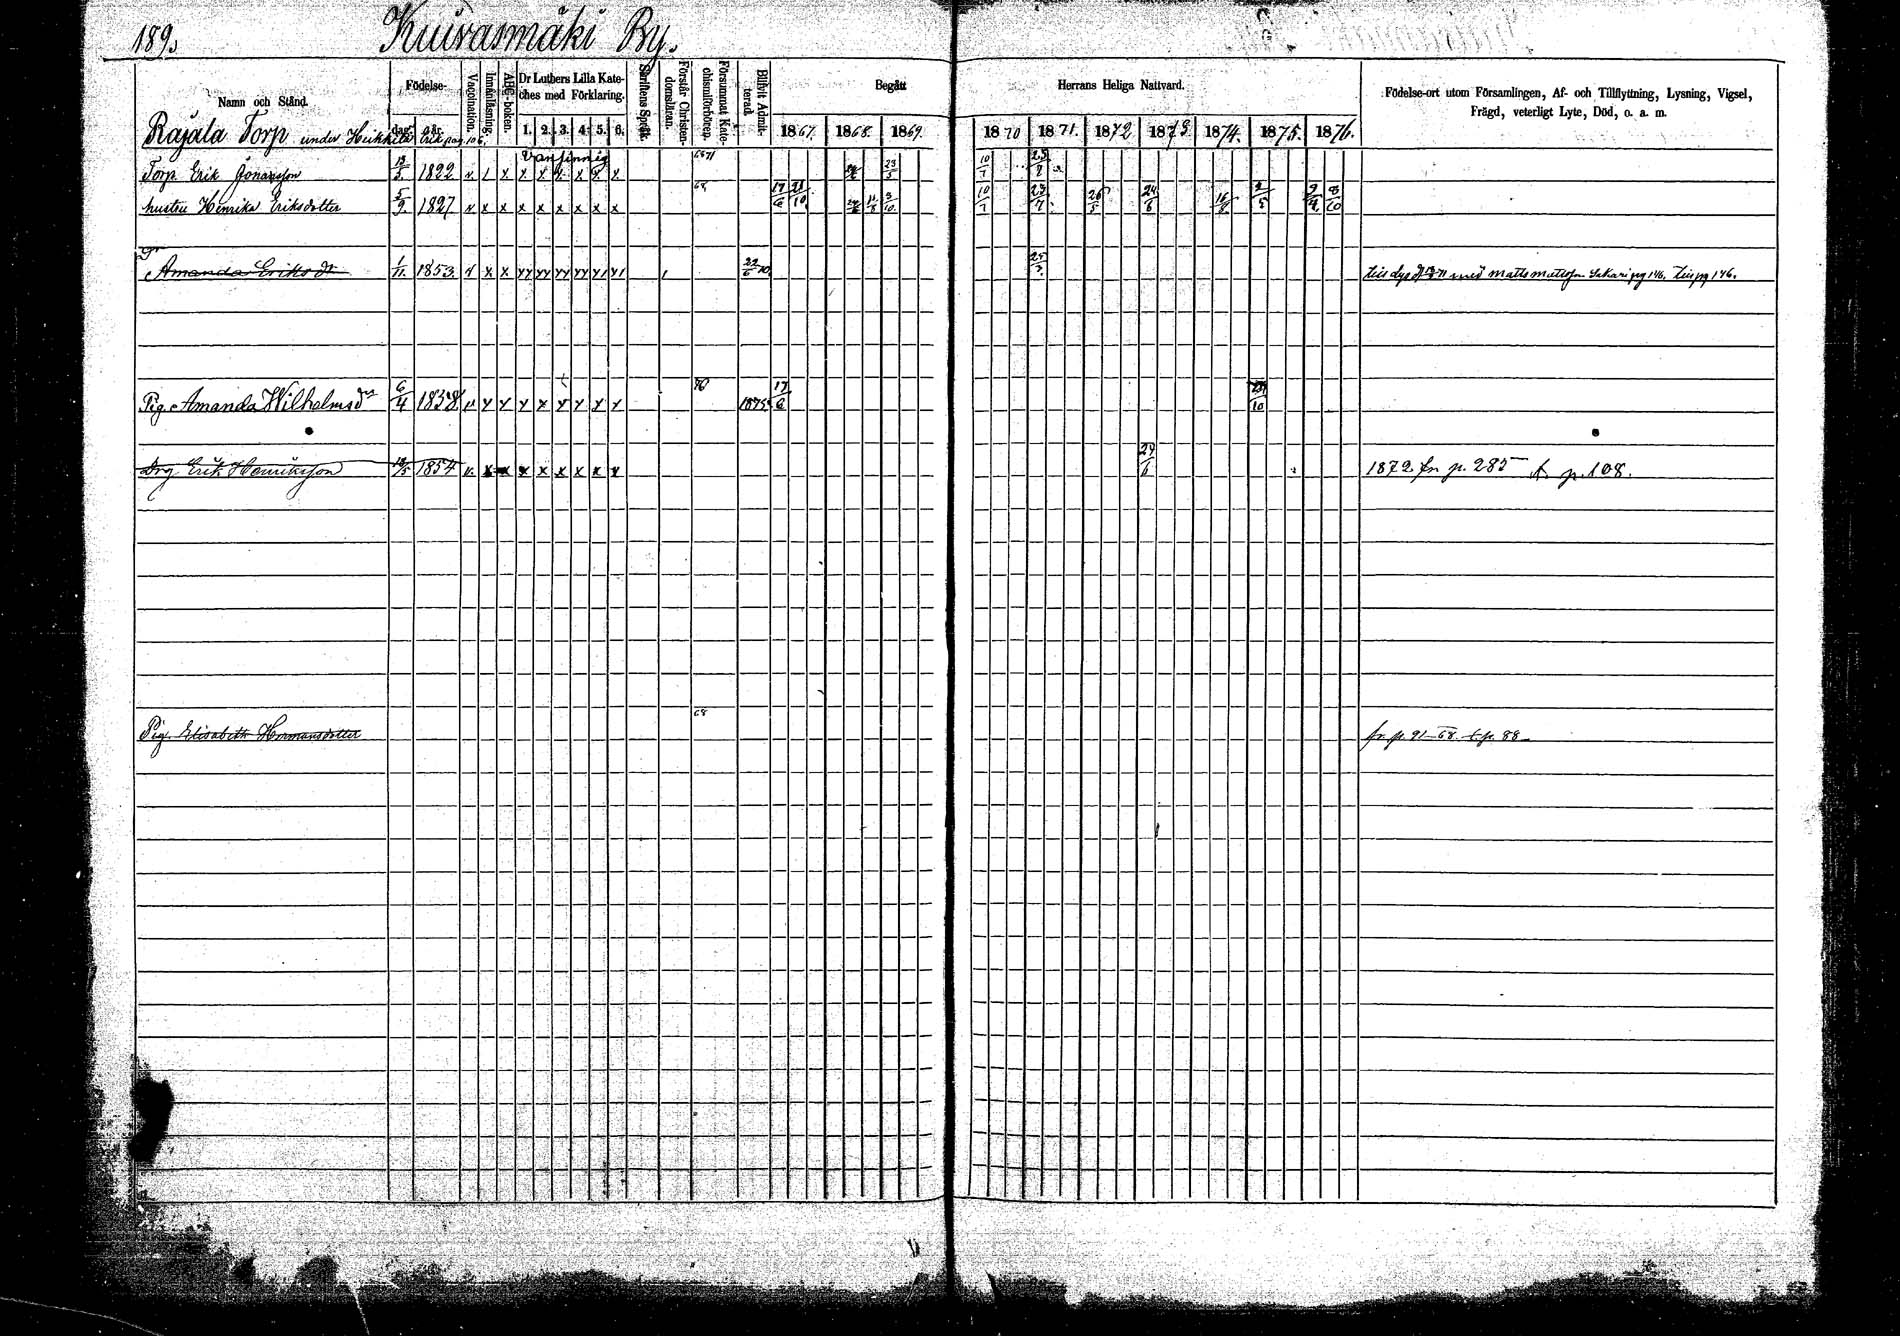 189.
Kuivasmäki By.
Namn och Stånd.
Födelse-
dag.
år.
Vaccination.
Innanläsning.
ABC-boken.
Dr Luthers Lilla Kate-
ches med Förklaring.
1. 2. 3. 4. 5. 6.
Skriftens Språk.
Förstår Christen-
domsläran.
Försummat Kate-
chismiförhören.
Blifvit Admit-
terad.
Begått
Herrans Heliga Nattvard.
1867. 1868. 1869.
1870 1871. 1872. 1873. 1874. 1875. 1876.
Födelse-ort utom Församlingen, Af- och Tillflyttning, Lysning, Vigsel,
Frägd, veterligt Lyte, Död, o. a. m.
Rajala Torp under Heikkilä Erik pag. 106.
Vansinnig
Torp. Erik Johansson 13/5. 1822 x x x x x x x
23/5 10/7
hustru Henrika Eriksdotter 5/9. 1827 x x x x x x x x
68 17/6 21/10 3/10. 10/7 23/7 26/5 24/6 8/10
D
Amanda Eriksdr 1/11. 1853 x x
22/6 70
med Matts Mattsson pg 146.
Pig. Amanda Wilhelmsdr 6/4 1838
76 1875 17/6 /10
Drg. Erik Henriksson 1854 x x x x x x x x
24/6
1872 fr p. 285 t. p. 108.
68
Pig. Elisabeth Hermansdotter
fr. p. 91-68. t. p. 88